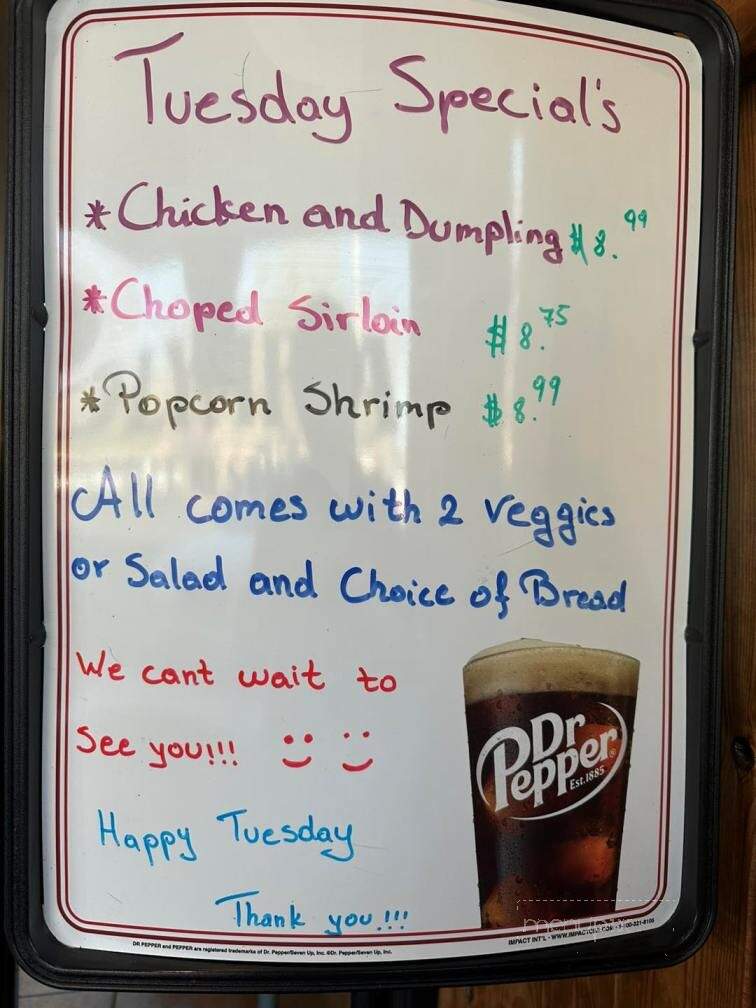 Tuesday Special's
*Chicken and Dumpling $8.99
*Choped Sirloin $8.75
*Popcorn Shrimp $8.99
All comes with 2 veggies
or Salad and Choice of Bread
We cant wait to
See you!!!
Happy Tuesday
Thank you!!!
Dr
Pepper
Est.1885
DR PEPPER and PEPPER are registered trademarks of Dr. Pepper/Seven Up, Inc. ©Dr. Pepper/Seven Up, Inc.